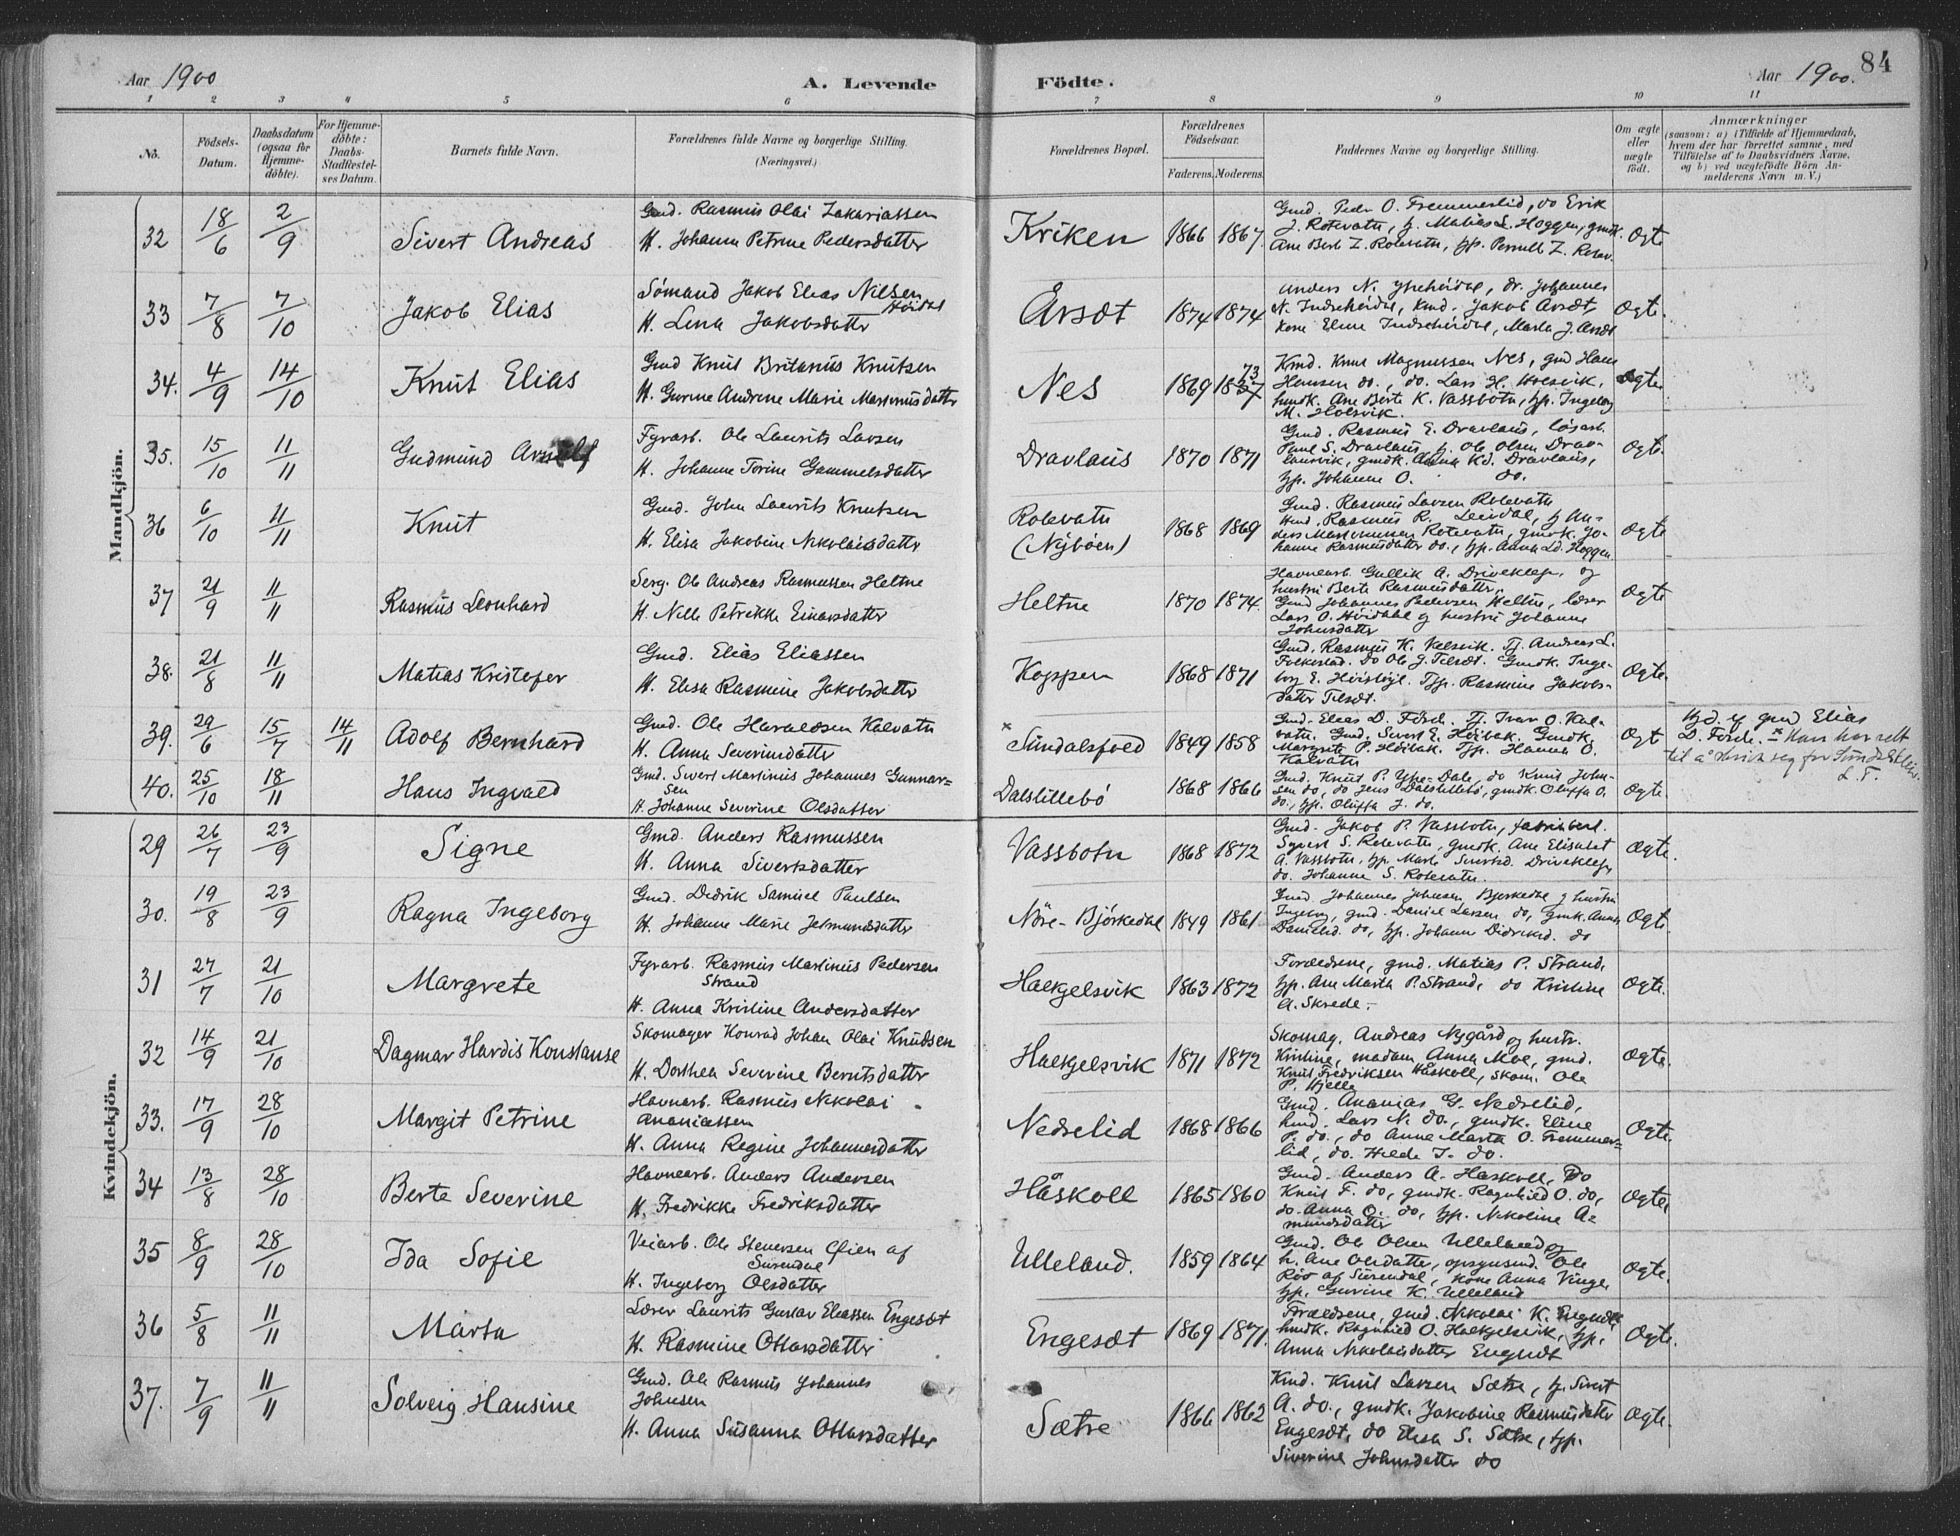 Aar 1900
A. Levende
Födte.
Aar 1900.
84
1 2 3 4 5 6 7 8 9 10 11
No.
Födsels-
Datum.
Daabsdatum
(ogsaa for
Hjemme-
döbte).
For Hjemme-
döbte:
Daabs-
Stadfæstel-
ses Datum.
Barnets fulde Navn.
Forældrenes fulde Navne og borgerlige Stilling.
(Næringsvei.)
Forældrenes Bopæl.
Forældrenes
Födselsaar.
Faderens. Moderens.
Faddernes Navne og borgerlige Stilling.
Om ægte
eller
uægte
födt.
Anmærkninger
(saasom: a) i Tilfælde af Hjemmedaab,
hvem der har forrettet samme, med
Tilföielse af to Daabsvidners Navne,
og b) ved uægtefödte Börn An-
melderens Navn m. V.)
Mandkjön.
32 18/6 2/9 Sivert Andreas
Gmd. Rasmus Olai Zakariassen
H. Johanne Petrine Pedersdatter
Kriken 1866 1867
Gmd. Peder O. Fremmerlid, do Erik
J. Rotevatn, Matias L. Hoggen, gmdk.
Ane Berte Z. Rotevatn, tjp. Pernille Z. Rotev.
Ogte
33 7/8 7/10 Jakob Elias
Sømand Jakob Elias Nilsen
Høidal
H. Lina Jakobsdatter
Årsæt 1874 1874
Anders N. Ytrehøidal, do. Johannes
N. Indrehøidal, Kmd. Jakob Aarsæt,
Kone Eline Indrehøidal, Marta J. Aarsæt
Ogte.
34. 4/9 14/10 Knut Elias
Gmd Knut Britanus Knutsen
H. Gurine Andrine Marie Martinusdatter
Nes 1869 1873
Kmd. Knut Magnussen Nes, gmd Hans
Hansen do., do. Lars H. Holsvik,
hmdk. Ane Berte K. Vassbotn, tjp. Ingeborg
M. Holsvik.
Ogte
35. 15/10 11/11 Gudmund Arnulf
Fyrarb. Ole Laurits Larsen
H. Johanne Torine Gammelsdatter
Dravlaus 1870 1871
Gmd. Rasmus E. Dravlaus, løsarb.
Paul S. Dravlaus, Ole Olsen Drav-
lausvik, gmdk. Anna Kd. Dravlaus,
tjp. Johanne O. do.
Ogte.
36 6/10 11/11 Knut
Gmd. John Laurits Knutsen
H. Elisa Jakobine Nikolaisdatter
Rotevatn
(Nybøen) 1868 1869
Gmd. Rasmus Larsen Rotevatn
Kmd. Rasmus R. Leirdal, An-
ders Martinussen Rotevatn, gmdk. Jo-
hanne Rasmusdatter do., tjp. Anna Ld. Hoggen
Ogte
37 21/9 11/11 Rasmus Leonhard
Serg. Ole Andreas Rasmussen Heltne
H. Nelle Petrikke Einarsdatter
Heltne 1870 1874.
Havnearb. Gullik A. Driveklep, og
hustru Berte Rasmusdatter.
Gmd Johannes Pedersen Heltne, lærer
Lars O. Høidahl og hustru Johanne
Johnsdatter
Ogte
38. 21/8 11/11 Matias Kristofer
Gmd. Elias Eliassen
H. Elisa Rasmine Jakobsdatter
Koppen 1868 1871
Gmd. Rasmus K. Velsvik. Tj. Andreas L.
Folkestad. do Ole J. Tilsæt. Gmdk. Inge-
borg E. Tjp. Rasmine Jakobs-
datter Tilsæt.
Ogte.
39. 29/6 15/7 14/11 Adolf Bernhard
Gmd. Ole Haraldsen Kalvatn
H. Anna Severinsdatter
× Sundalsfoed 1849 1858
Gmd. Elias D. Førde. Tj. Ivar O. Kal-
vatn. Gmd. Sivert E. Høibak. Gmdk.
Margrete P. Høibak. Tjp. Hanna O.
Kalvatn
Ogt
Hjd. af gmd Elias
D. Førde. × Han har rett
til å skrive seg for
L. F.
40. 25/10 18/11 Hans Ingvald
Gmd. Sivert Martinus Johannes Gunnar-
sen
H. Johanne Severine Olsdatter
Dalslillebø 1868 1866
Gmd. Knut P. Ytre-Dale, do Knut John-
sen do, do Jens Dalslillebø, gmdk. Oluffa O.
do., tjp. Oluffa J. do.
Ogte.
Kvindekjön.
29 26/7 23/9 Signe
Gmd. Anders Rasmussen
H. Anna Sivertsdatter
Vassbotn 1868 1872
Gmd. Jakob P. Vassbotn,
Syvert S. Rotevatn, gmdk. Ane Elisabet
A. Vassbotn, tjp. Marte Sivertsd. Driveklep,
do. Johanne S. Rotevatn.
Ogte.
30. 19/8 23/9 Ragna Ingeborg
Gmd. Didrik Samuel Paulsen
H. Johanne Marie Jetmundsdatter
Nöre-Björkedal 1849 1861
Gmd. Johannes Johnsen Bjerkedal og hustru
Ingeborg, gmd. Daniel Larsen do, gmdk. Anne
Danielsd. do, tjp. Johanne Didriksd. do
Ogte.
31 27/7 21/10 Margrete
Fyrarb. Rasmus Martinus Pedersen
Strand
H. Anna Kristine Andersdatter
Halkjelsvik 1863 1872
Forældrene, gmd. Matias P. Strand,
tjp. Ane Marta P. Strand, do Kristine
A. Skrede.-
Ogte.
32 14/9 21/10 Dagmar Hardis Konstanse
Skomager Konrad Johan Olai Knudsen
H. Dorthea Severine Berntsdatter
Halkjelsvik 1871 1872
Skomag. Andreas Nygård og hustr.
Kristine, madam Anna Moe, gmd.
Knut Fredriksen Håskoll, skom. Ole
P. Hjelle
Ogte.
33. 17/9 28/10 Margit Petrine
Havnarb. Rasmus Nikolai
Ananiassen
H. Anna Regine Johannesdatter
Nedrelid 1868 1866
Gmd. Ananias G. Nedrelid,
Kmd. Lars N. do., gmdk. Eline
P. do., do Anne Marta O. Fremmer-
lid, do. Hilde I. do.
Ogte.
34 13/8 28/10 Berte Severine
Havnearb. Anders Andersen
H. Fredrikke Fredriksdatter
Håskoll 1865 1860
Gmd. Anders A. Haskoll, Do
Knut F. do, gmdk. Ragnhild O. do,
do. Anna O. do, tjp. Nikoline A-
mundsdatter
Ogte,
35 8/9 28/10 Ida Sofie
Veiarb. Ole Stenersen Øien af
Surendal
H. Ingeborg Olsdatter
Ulleland. 1859 1864
Gmd. Ole Olsen Ulleland og
h. Ane Olsdatter, opsynsmd. Ole
Röv af Surendal, Kone Anna Vinge,
tjp. Gurine K. Ulleland
Ogte.
36 5/8 11/11 Marta
Lærer Laurits Gustav Eliassen Engeset
H. Rasmine Ottarsdatter
Engesæt 1869 1871.
Forældrene, gmd. Nikolai K. Engesæt
hmdk. Ragnhild O. Halkjelsvik, tjp.
Anna Nikolaisdatter Engesæt
Ogte.
37. 7/9 11/11 Solveig Hansine
Gmd. Ole Rasmus Johannes
Johnsen
H. Anna Susanna Ottarsdatter
Sætre 1866 1862
Kmd. Knut Larsen Sætre, Sivert
A. do., gmdk. Jakobine Rasmusdatter
Engesæt, do Elisa S. Sætre, tjp.
Siverine Johnsdatter do
Ogte.